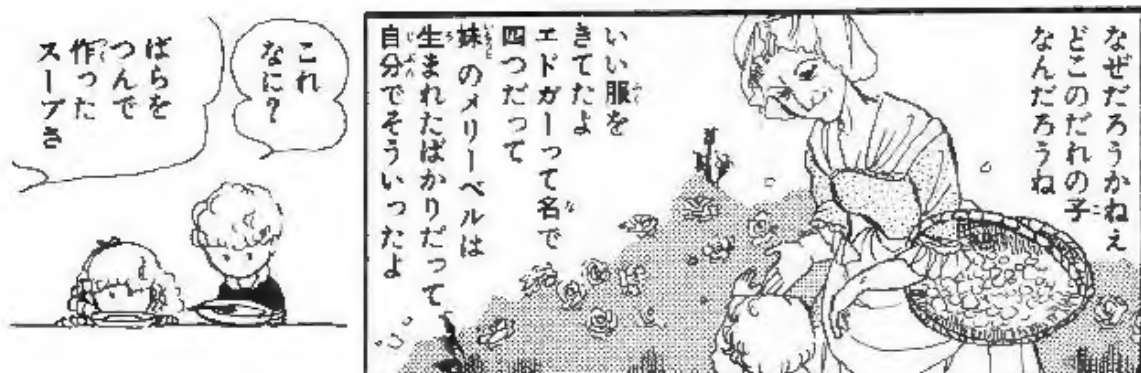 なぜだろうかねぇ
どこのだれの子
なんだろうね
いい服を
きてたよ
エドガーって名で
四つだって
妹のメリーベルは
生まれたばかりだって
自分でそういったよ
これ
なに?
ばらを
つんで
作った
スープさ